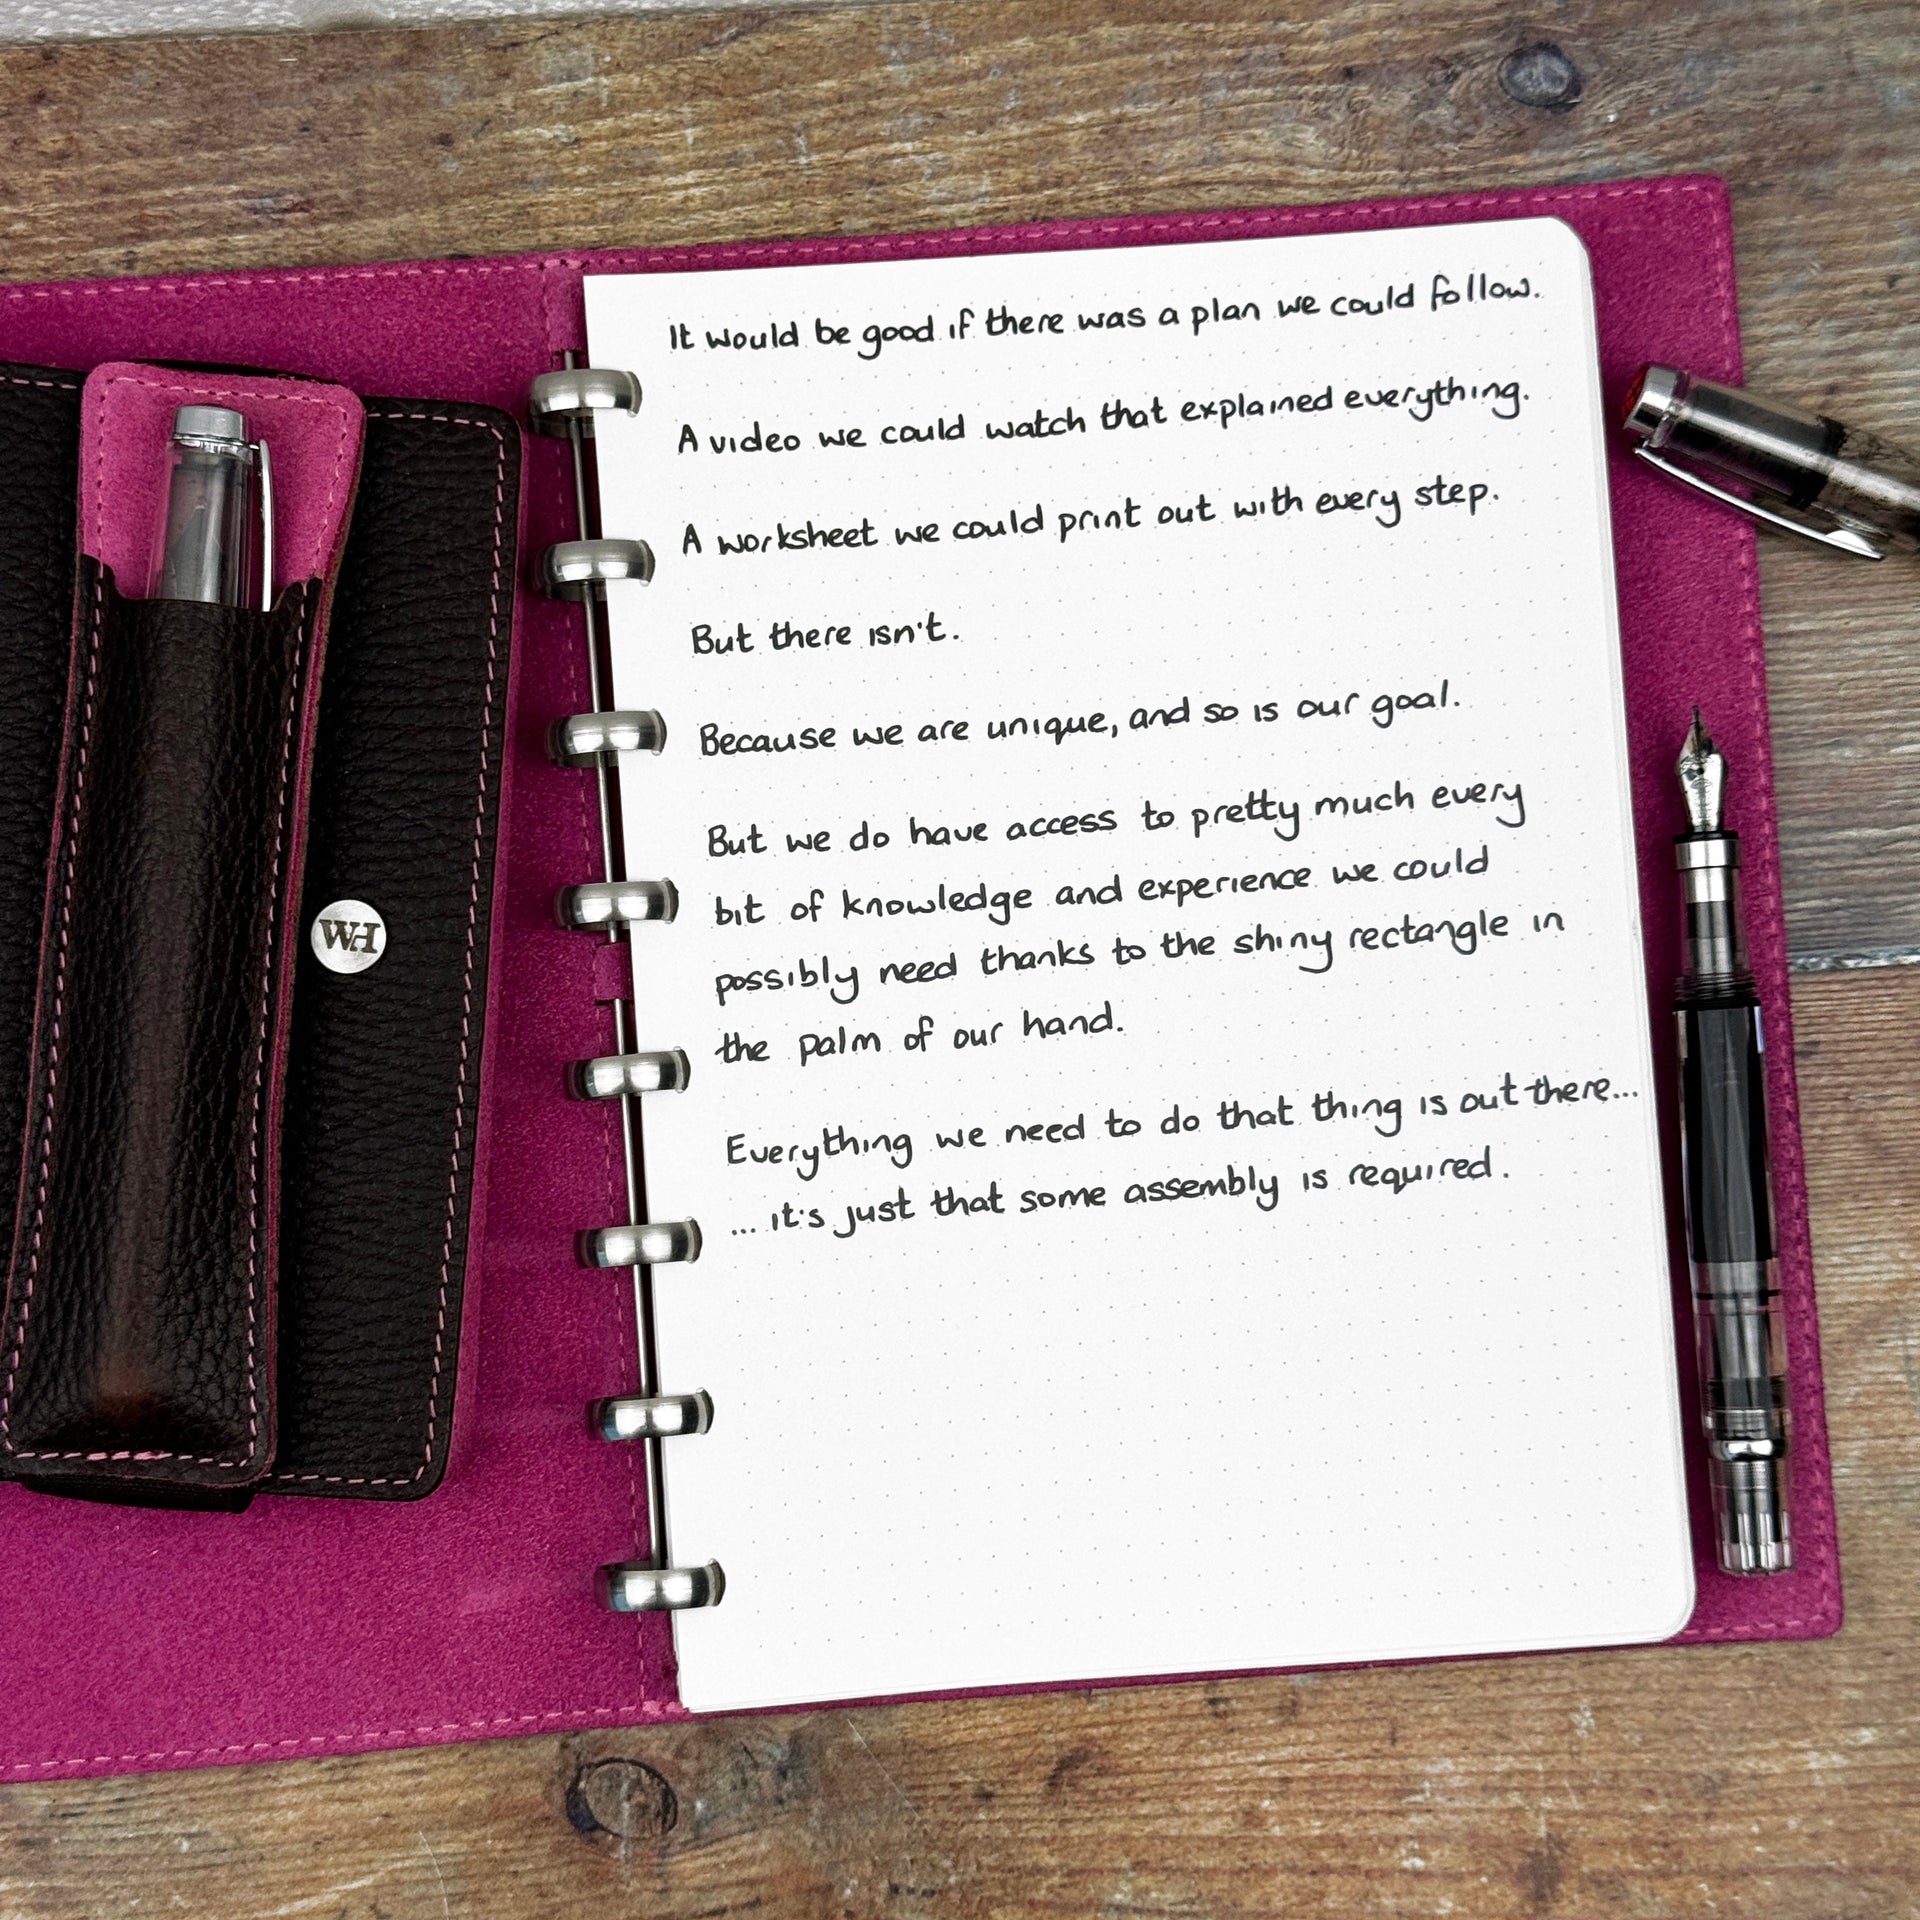 It would be good if there was a plan we could follow.
A video we could watch that explained everything.
A worksheet we could print out with every step.
But there isn't.
Because we are unique, and so is our goal.
But we do have access to pretty much every
bit of knowledge and experience we could
possibly need thanks to the shiny rectangle in
the palm of our hand.
Everything we need to do that thing is out there...
... it's just that some assembly is required.
WH